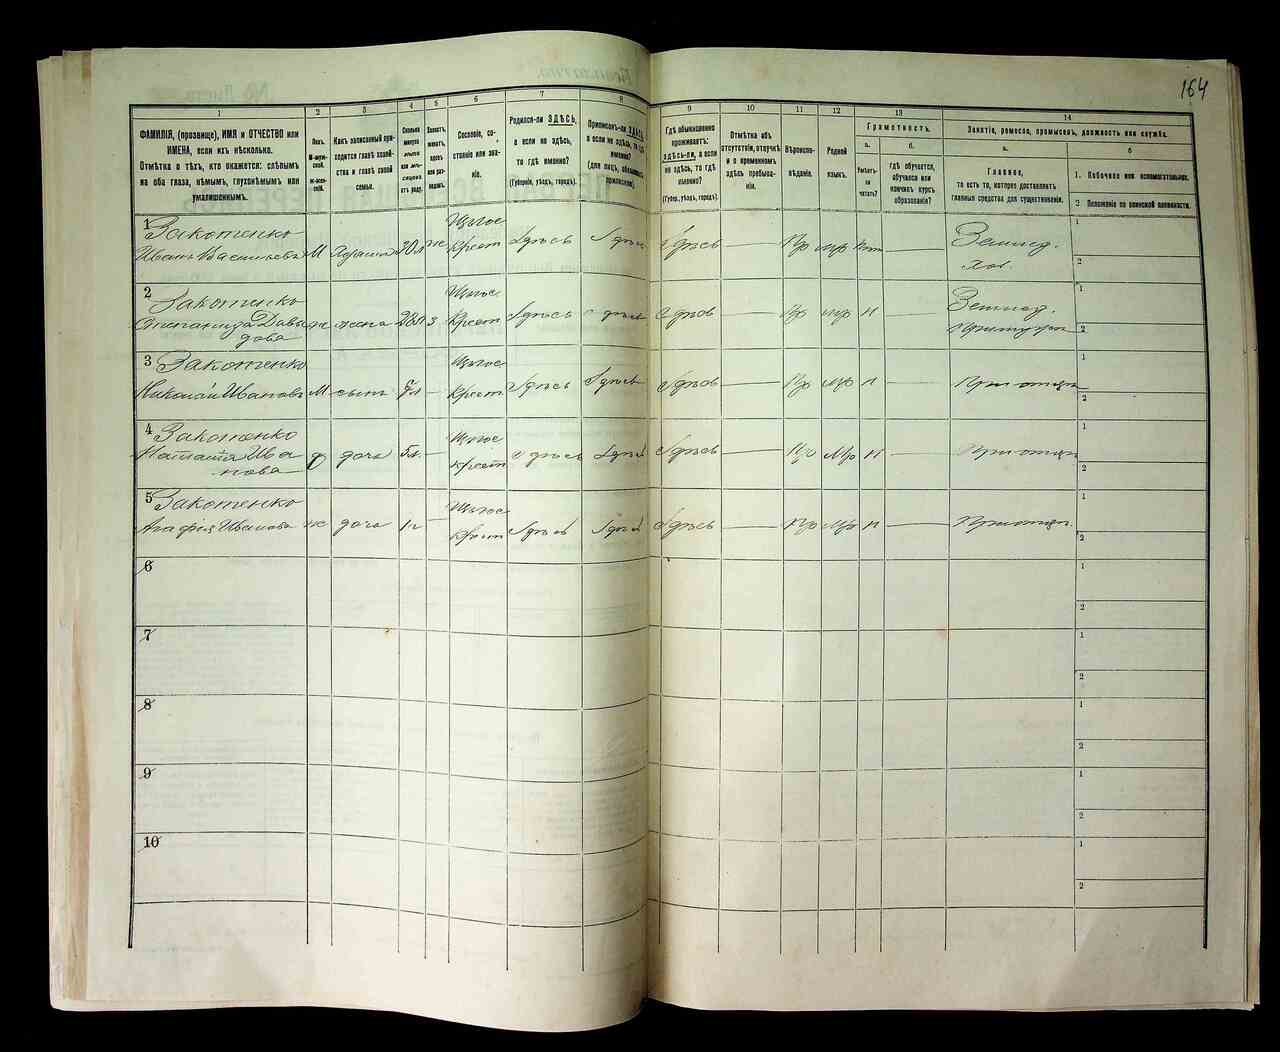 164
1
2
3
4
5
6
7
8
9
10
11
12
13
14
ФАМИЛІЯ, (прозвище), ИМЯ и ОТЧЕСТВО или
ИМЕНА, если ихъ нѣсколько.
Отмѣтка о тѣхъ, кто окажется: слѣпымъ
на оба глаза, нѣмымъ, глухонѣмымъ или
умалишеннымъ.
Полъ.
М-мужской.
ж-женскій.
Какъ записанный приходится
главѣ хозяйства и главѣ своей
семьи.
Сколько
минуло
лѣтъ
или мѣсяцевъ
отъ роду.
Холостъ,
женатъ,
вдовъ
или разведенъ.
Сословіе, состояніе
или званіе.
Родился-ли ЗДѢСЬ,
а если не здѣсь,
то гдѣ именно?
(Губернія, уѣздъ, городъ).
Приписанъ-ли ЗДѢСЬ,
а если не здѣсь, то гдѣ
именно?
(для лицъ, обязанныхъ
припискою).
Гдѣ обыкновенно
проживаетъ:
ЗДѢСЬ-ЛИ, а если
не здѣсь, то гдѣ
именно?
(Губер., уѣздъ, городъ).
Отмѣтка объ
отсутствіи, отлучкѣ
и о временномъ
здѣсь пребываніи.
Вѣроисповѣданіе.
Родной
языкъ.
Грамотность.
а.
Умѣетъ-ли
читать?
б.
гдѣ обучается,
обучался или
кончилъ курсъ
образованія?
Занятіе, ремесло, промыселъ, должность или служба.
а.
Главное,
то есть то, которое доставляетъ
главныя средства для существованія.
б
1. Побочное или вспомогательное.
2 Положеніе по воинской повинности.
1
Закотенко
Иванъ Васильевъ М Хозяинъ 30л ж Крест Здѣсь Здѣсь Здѣсь — Пр мр нѣт —
Землед.
Хоз.
1
2
2
Закотенко
Степанида Давы
дова ж жена 28л з Крест Здѣсь Здѣсь Здѣсь — Пр мр н —
Землед.
1
2
3
Закотенко
Николай Ивановъ М сынъ л — Крест Здѣсь Здѣсь Здѣсь — Пр мр н — При отцѣ
1
2
4
Закотенко
Наталія Ива
нова дочь 5л. — Крест Здѣсь Здѣсь Здѣсь — Пр Мр н — При отцѣ
1
2
5
Закотенко
Агафія Иванова ж дочь 1г — Крест Здѣсь Здѣсь Здѣсь — Пр Мр н — При отцѣ.
1
2
6
1
2
7
1
2
8
1
2
9
1
2
10
1
2